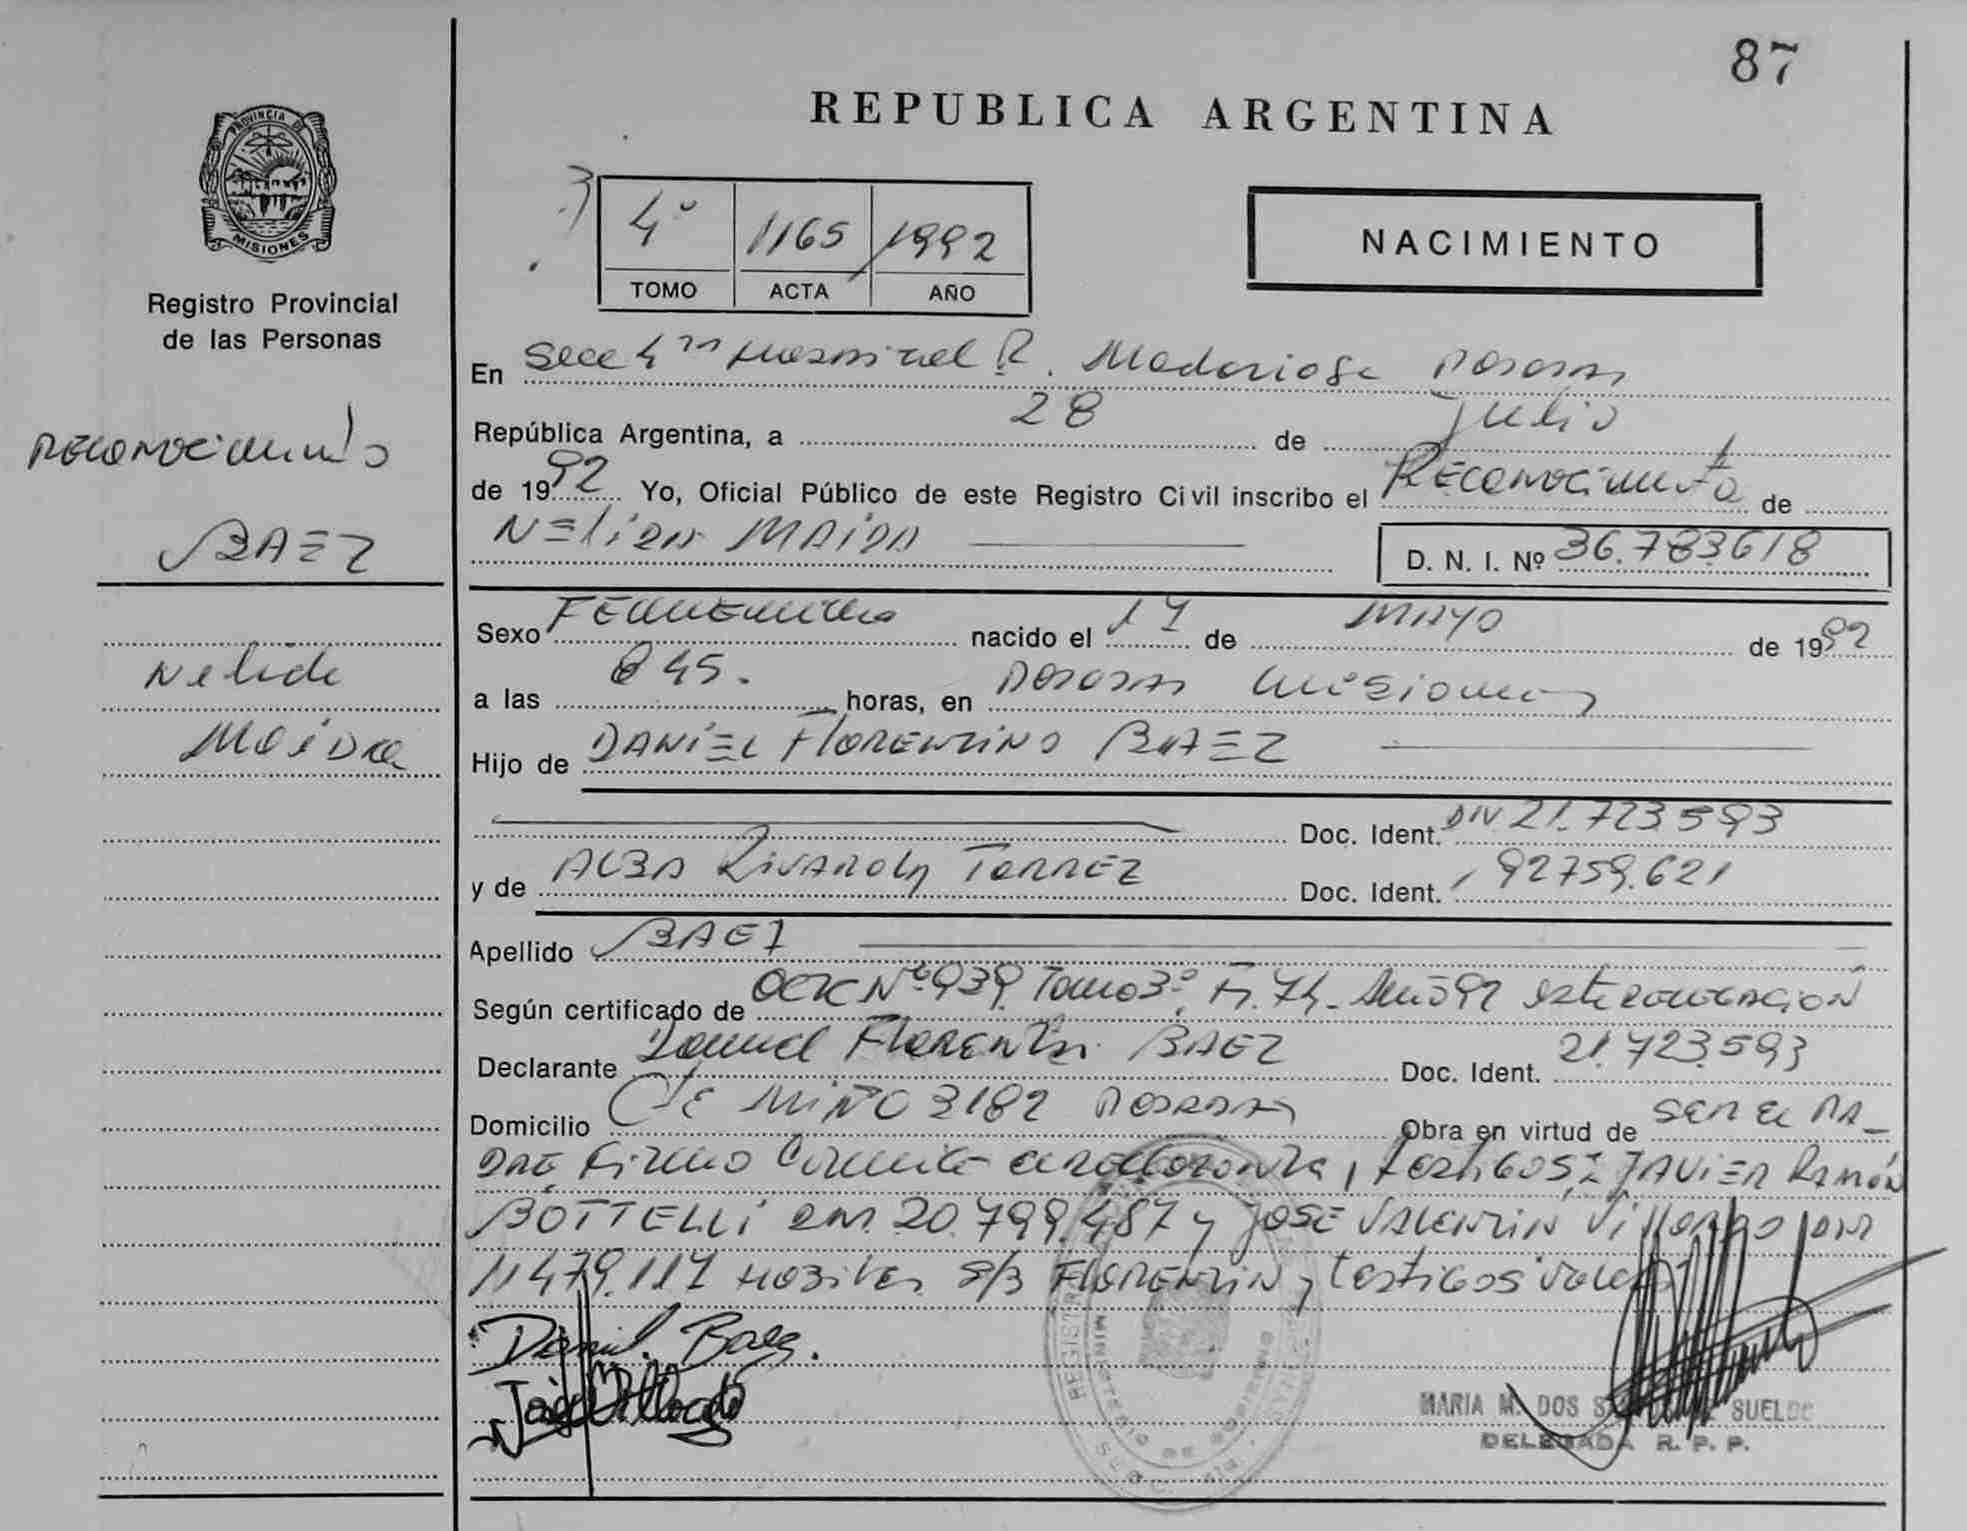 87
REPUBLICA ARGENTINA
PROVINCIA DE
MISIONES
Registro Provincial
de las Personas
4º 1165 1992
TOMO ACTA AÑO
NACIMIENTO
En Secc 4ta Hospital R. Madariaga Posadas
República Argentina, a 28 de Julio
de 1992 Yo, Oficial Público de este Registro Civil inscribo el Reconocimiento de
NELIDA MAIDA
D. N. I. Nº 36.783618
Reconocimiento
BAEZ
Nelida
Maida
Sexo FEMENINO nacido el 17 de MAYO de 1992
a las 845. horas, en Posadas Misiones
Hijo de DANIEL FLORENTINO BAEZ
Doc. Ident. DNI 21.723593
y de ALBA RIVAROLA TORREZ Doc. Ident. 92759.621
Apellido BAEZ
Según certificado de Nº 939 Tomo 3º Fº 74 Año 92
Declarante Daniel Florentin BAEZ Doc. Ident. 21.723.593
Domicilio Cje MIÑO 3182 Posadas Obra en virtud de ser el PA_
DRE firma testigos: JAVIER Ramón
BOTTELLI DNI. 20.799.487 y JOSE VALENTIN Villordo DNI
11479.117 s/b FLORENTIN y testigos vale
Daniel. Baez.
MARIA M. DOS SUELDO
DELEGADA R. P. P.